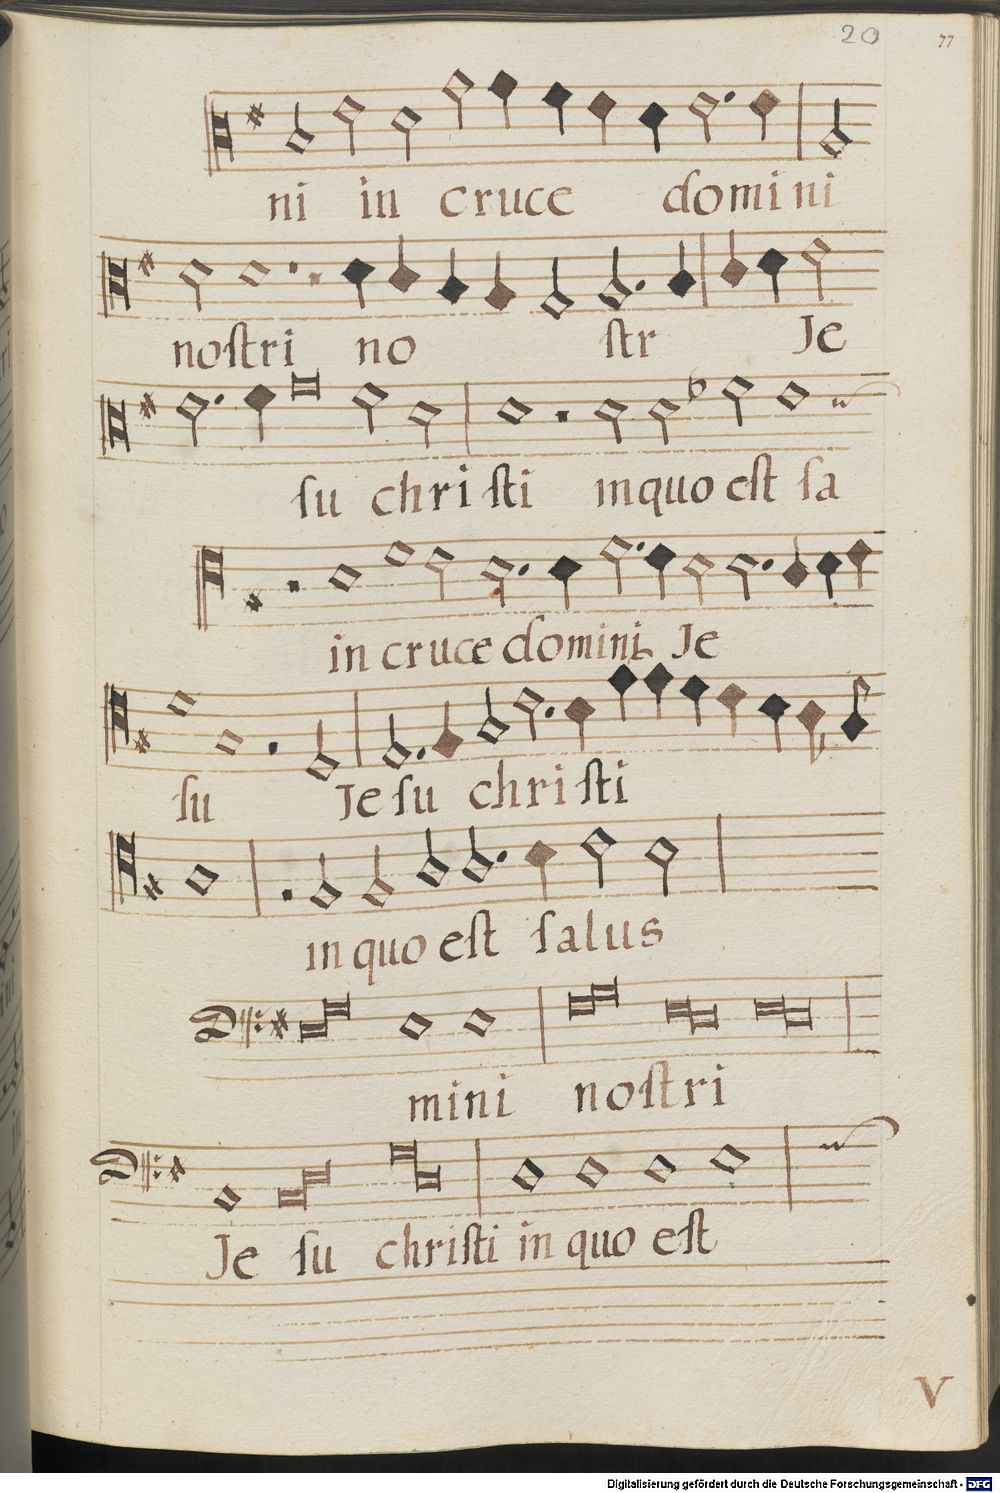 20 77
ni in cruce domini ni
noſtri no ſtr Je
ſu chri ſti in quo eſt ſa
in cruce domini Je
ſu Je ſu chri ſti
in quo eſt ſalus
mini noſtri
Je ſu chriſti in quo eſt
V
Digitalisierung gefördert durch die Deutsche Forschungsgemeinschaft - DFG